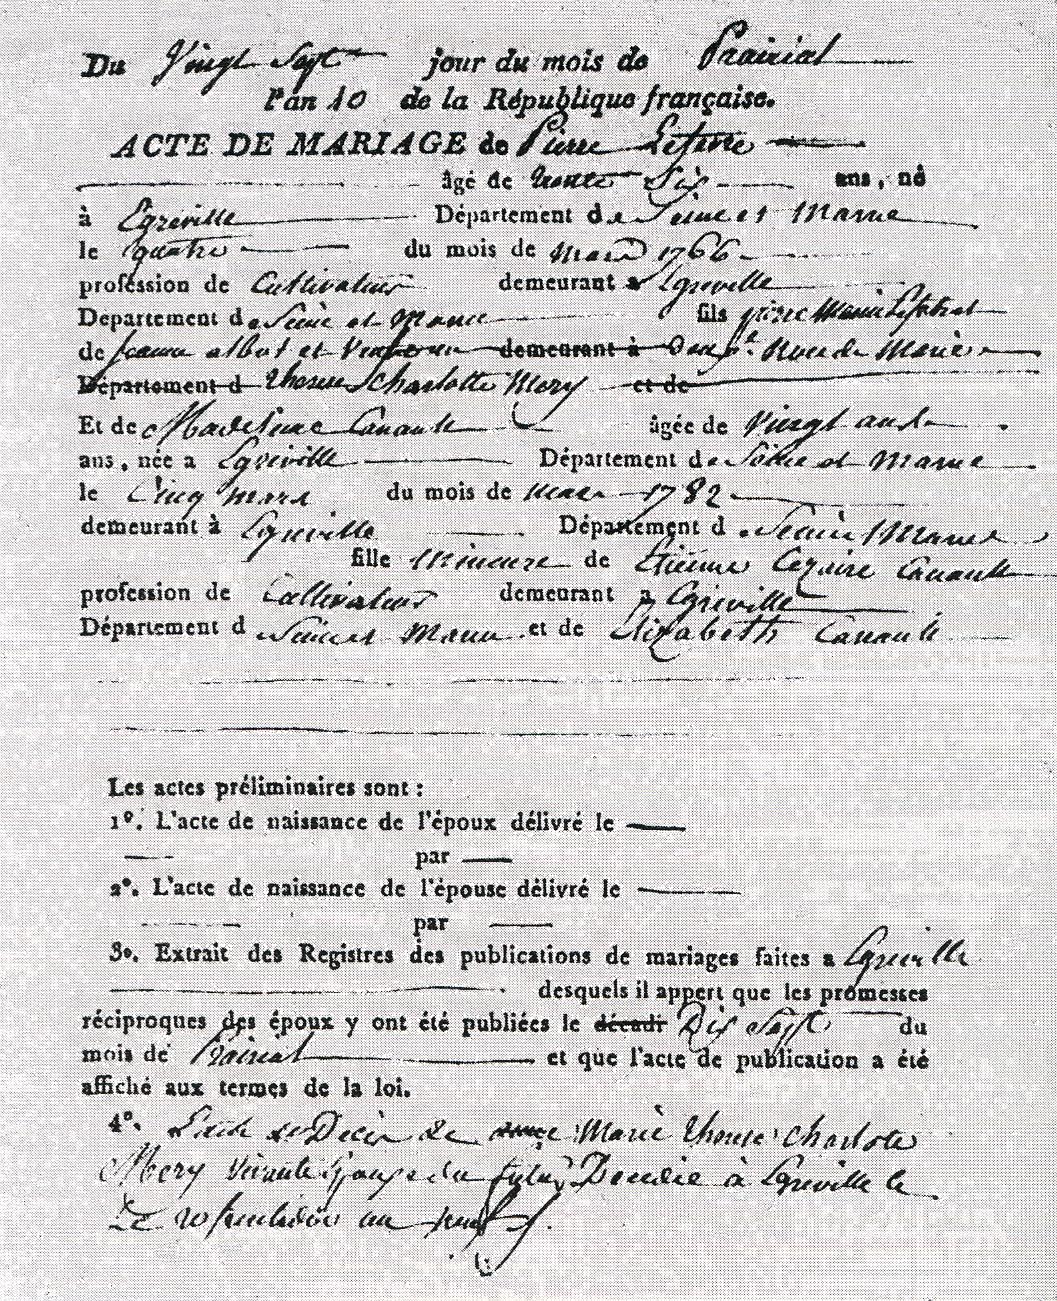 Du Vingt Sept jour du mois de Prairial
l'an 10 de la République française.
ACTE DE MARIAGE de Pierre Lefevre
âgé de trente Six ans, né
à Egreville Département de Seine et Marne
le quatre du mois de mars 1766
profession de Cultivateur demeurant a Egreville
Département de Seine et Marne fils
de et demeurant à Veuf de Marie
Département d therese Charlotte Mery et de
Et de Madeleine Canault âgée de Vingt ans
ans, née a Egreville Département de Seine et Marne
le Cinq mars du mois de mars 1782
demeurant à Egreville Département d Seine Marne
fille mineure de Etienne Cezaire Canault
profession de Cultivateur demeurant a Egreville
Département d Seine et Marne et de Elizabeth Canault
Les actes préliminaires sont :
1º. L'acte de naissance de l'époux délivré le
par
2º. L'acte de naissance de l'épouse délivré le
par
3º. Extrait des Registres des publications de mariages faites a Egreville
desquels il appert que les promesses
réciproques des époux y ont été publiées le décadi Dix Sept du
mois de Prairial et que l'acte de publication a été
affiché aux termes de la loi.
4º. L'acte de Décès de Marie therese Charlotte
Mery Vivante Epouse du futur Decedée à Egreville le
an neuf